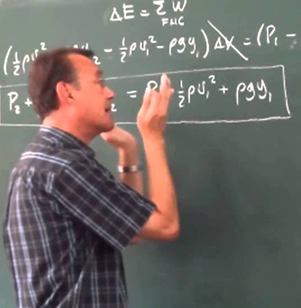 ΔE = Σ W
FNC
(½ρv₂² - ½ρv₁² - ρgy₁) ΔV = (P₁ -
P₂ + ² = P ½ρv₁² + ρgy₁